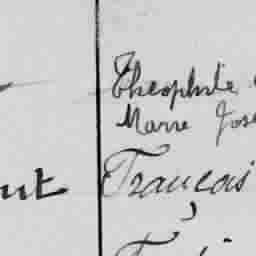 Théophile
Marie Jose
ut François